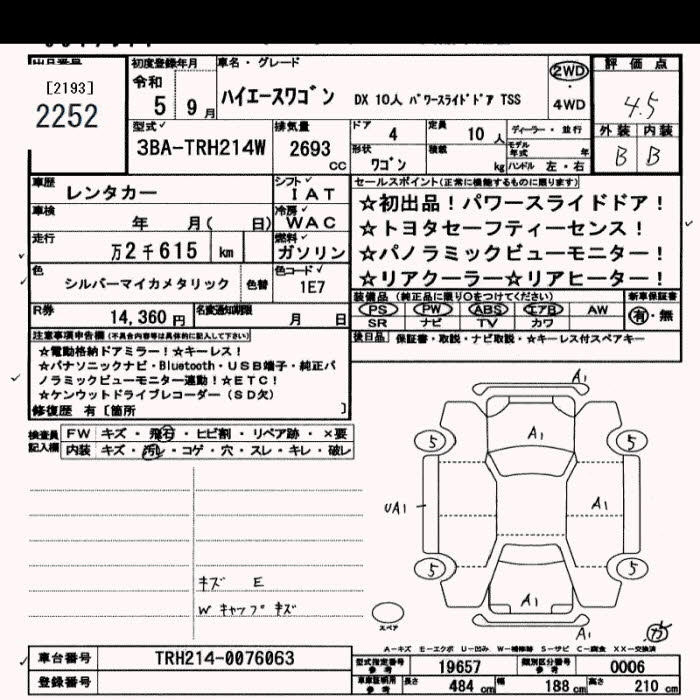 初度登録年月 車名・グレード 2WD 評価点
[2193] 令和
2252 5 9月 ハイエースワゴン DX 10人 パワースライドドア TSS ・ 4WD 4.5
型式 排気量 ドア 4 定員 10人 ディーラー・並行 外装 内装
3BA-TRH214W 2693 cc 形状 ワゴン 積載 kg モデル年式 年 ハンドル 左・右 B B
車歴 レンタカー シフト IAT セールスポイント(正常に機能するものに限ります)
車検 年 月( 日) 冷房 WAC ☆初出品!パワースライドドア!
走行 万2千615 km 燃料 ガソリン ☆トヨタセーフティーセンス!
☆パノラミックビューモニター!
色 シルバーマイカメタリック 色替 色コード 1E7 ☆リアクーラー☆リアヒーター!
R券 14,360円 名変通知期限 月 日 装備品 (純正品に限り○をつけてください) 新車保証書
PS PW ABS エアB AW 有・無
SR ナビ TV カワ
注意事項申告欄(不具合内容等は具体的に記入して下さい) 後日品 保証書・取説・ナビ取説・☆キーレス付スペアキー
☆電動格納ドアミラー!☆キーレス!
☆パナソニックナビ・Bluetooth・USB端子・純正パ
ノラミックビューモニター連動!☆ETC!
☆ケンウットドライブレコーダー(SD欠)
修復歴 有[箇所 ]
検査員記入欄 FW キズ・飛石・ヒビ割・リペア跡・×要
内装 キズ・汚レ・コゲ・穴・スレ・キレ・破レ
A1
5 A1 5
UA1 A1
5 5
キズ E
W キャップキズ
A1
スペア A1
A-キズ E-エクボ U-凹み W-補修跡 S-サビ C-腐食 XX-交換済
車台番号 TRH214-0076063 型式指定番号 参考 19657 類別区分番号 参考 0006
登録番号 車庫証明用 参考 長さ 484 cm 幅 188 cm 高さ 210 cm